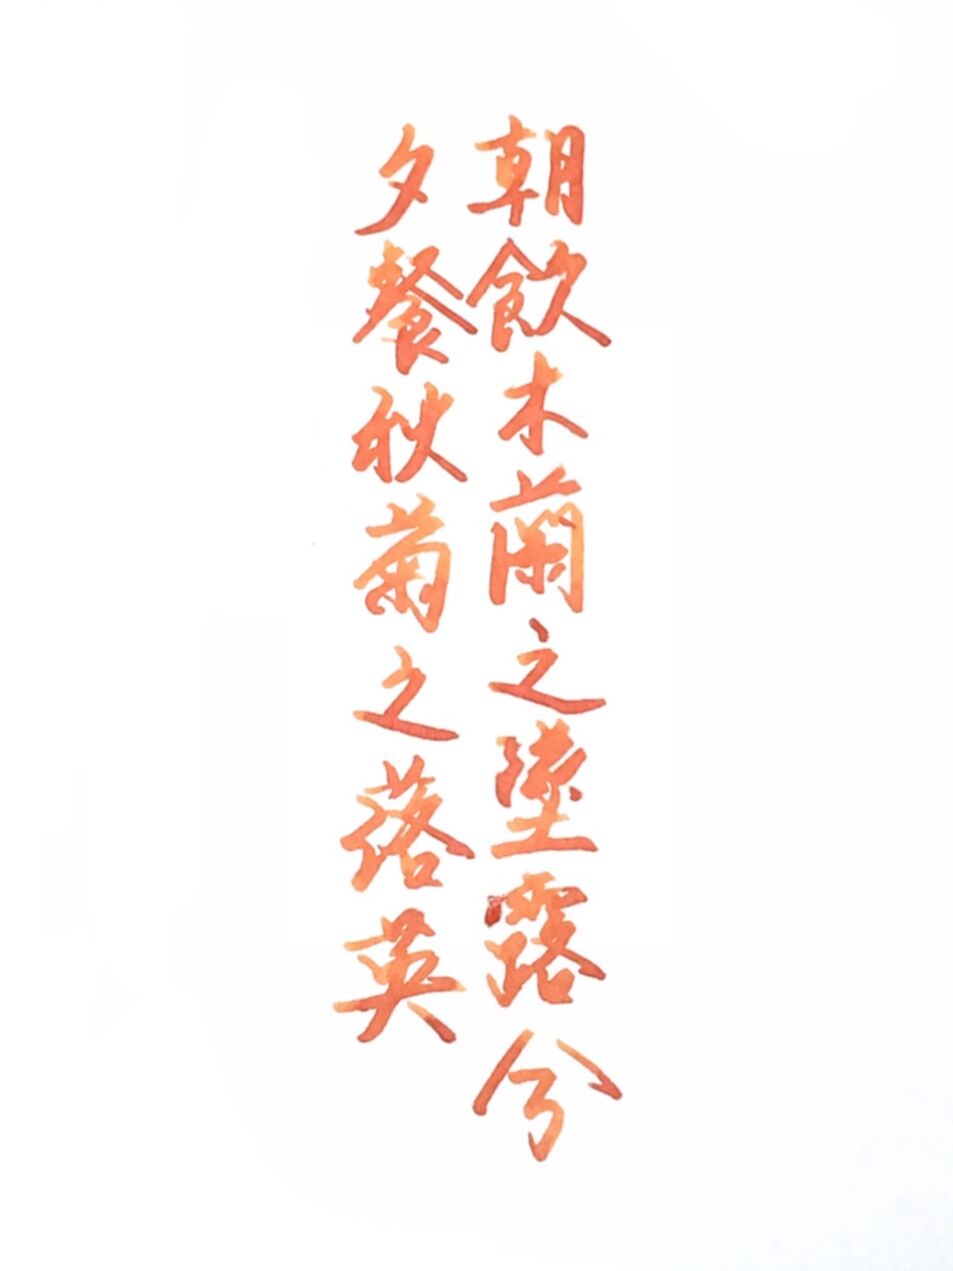 朝飲木蘭之墜露兮
夕餐秋菊之落英